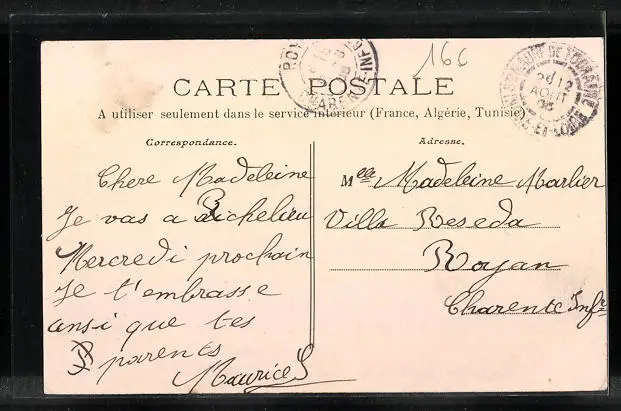 166
CARTE POSTALE
A utiliser seulement dans le service intérieur (France, Algérie, Tunisie)
Correspondance.
Chere Madeleine
Je vas a Richelieu
Mercredi prochain
Je t'embrasse
ansi que tes
parents
Maurice S
Adresse.
Melle Madeleine Marlier
Villa Reseda
Royan
Charente Infre